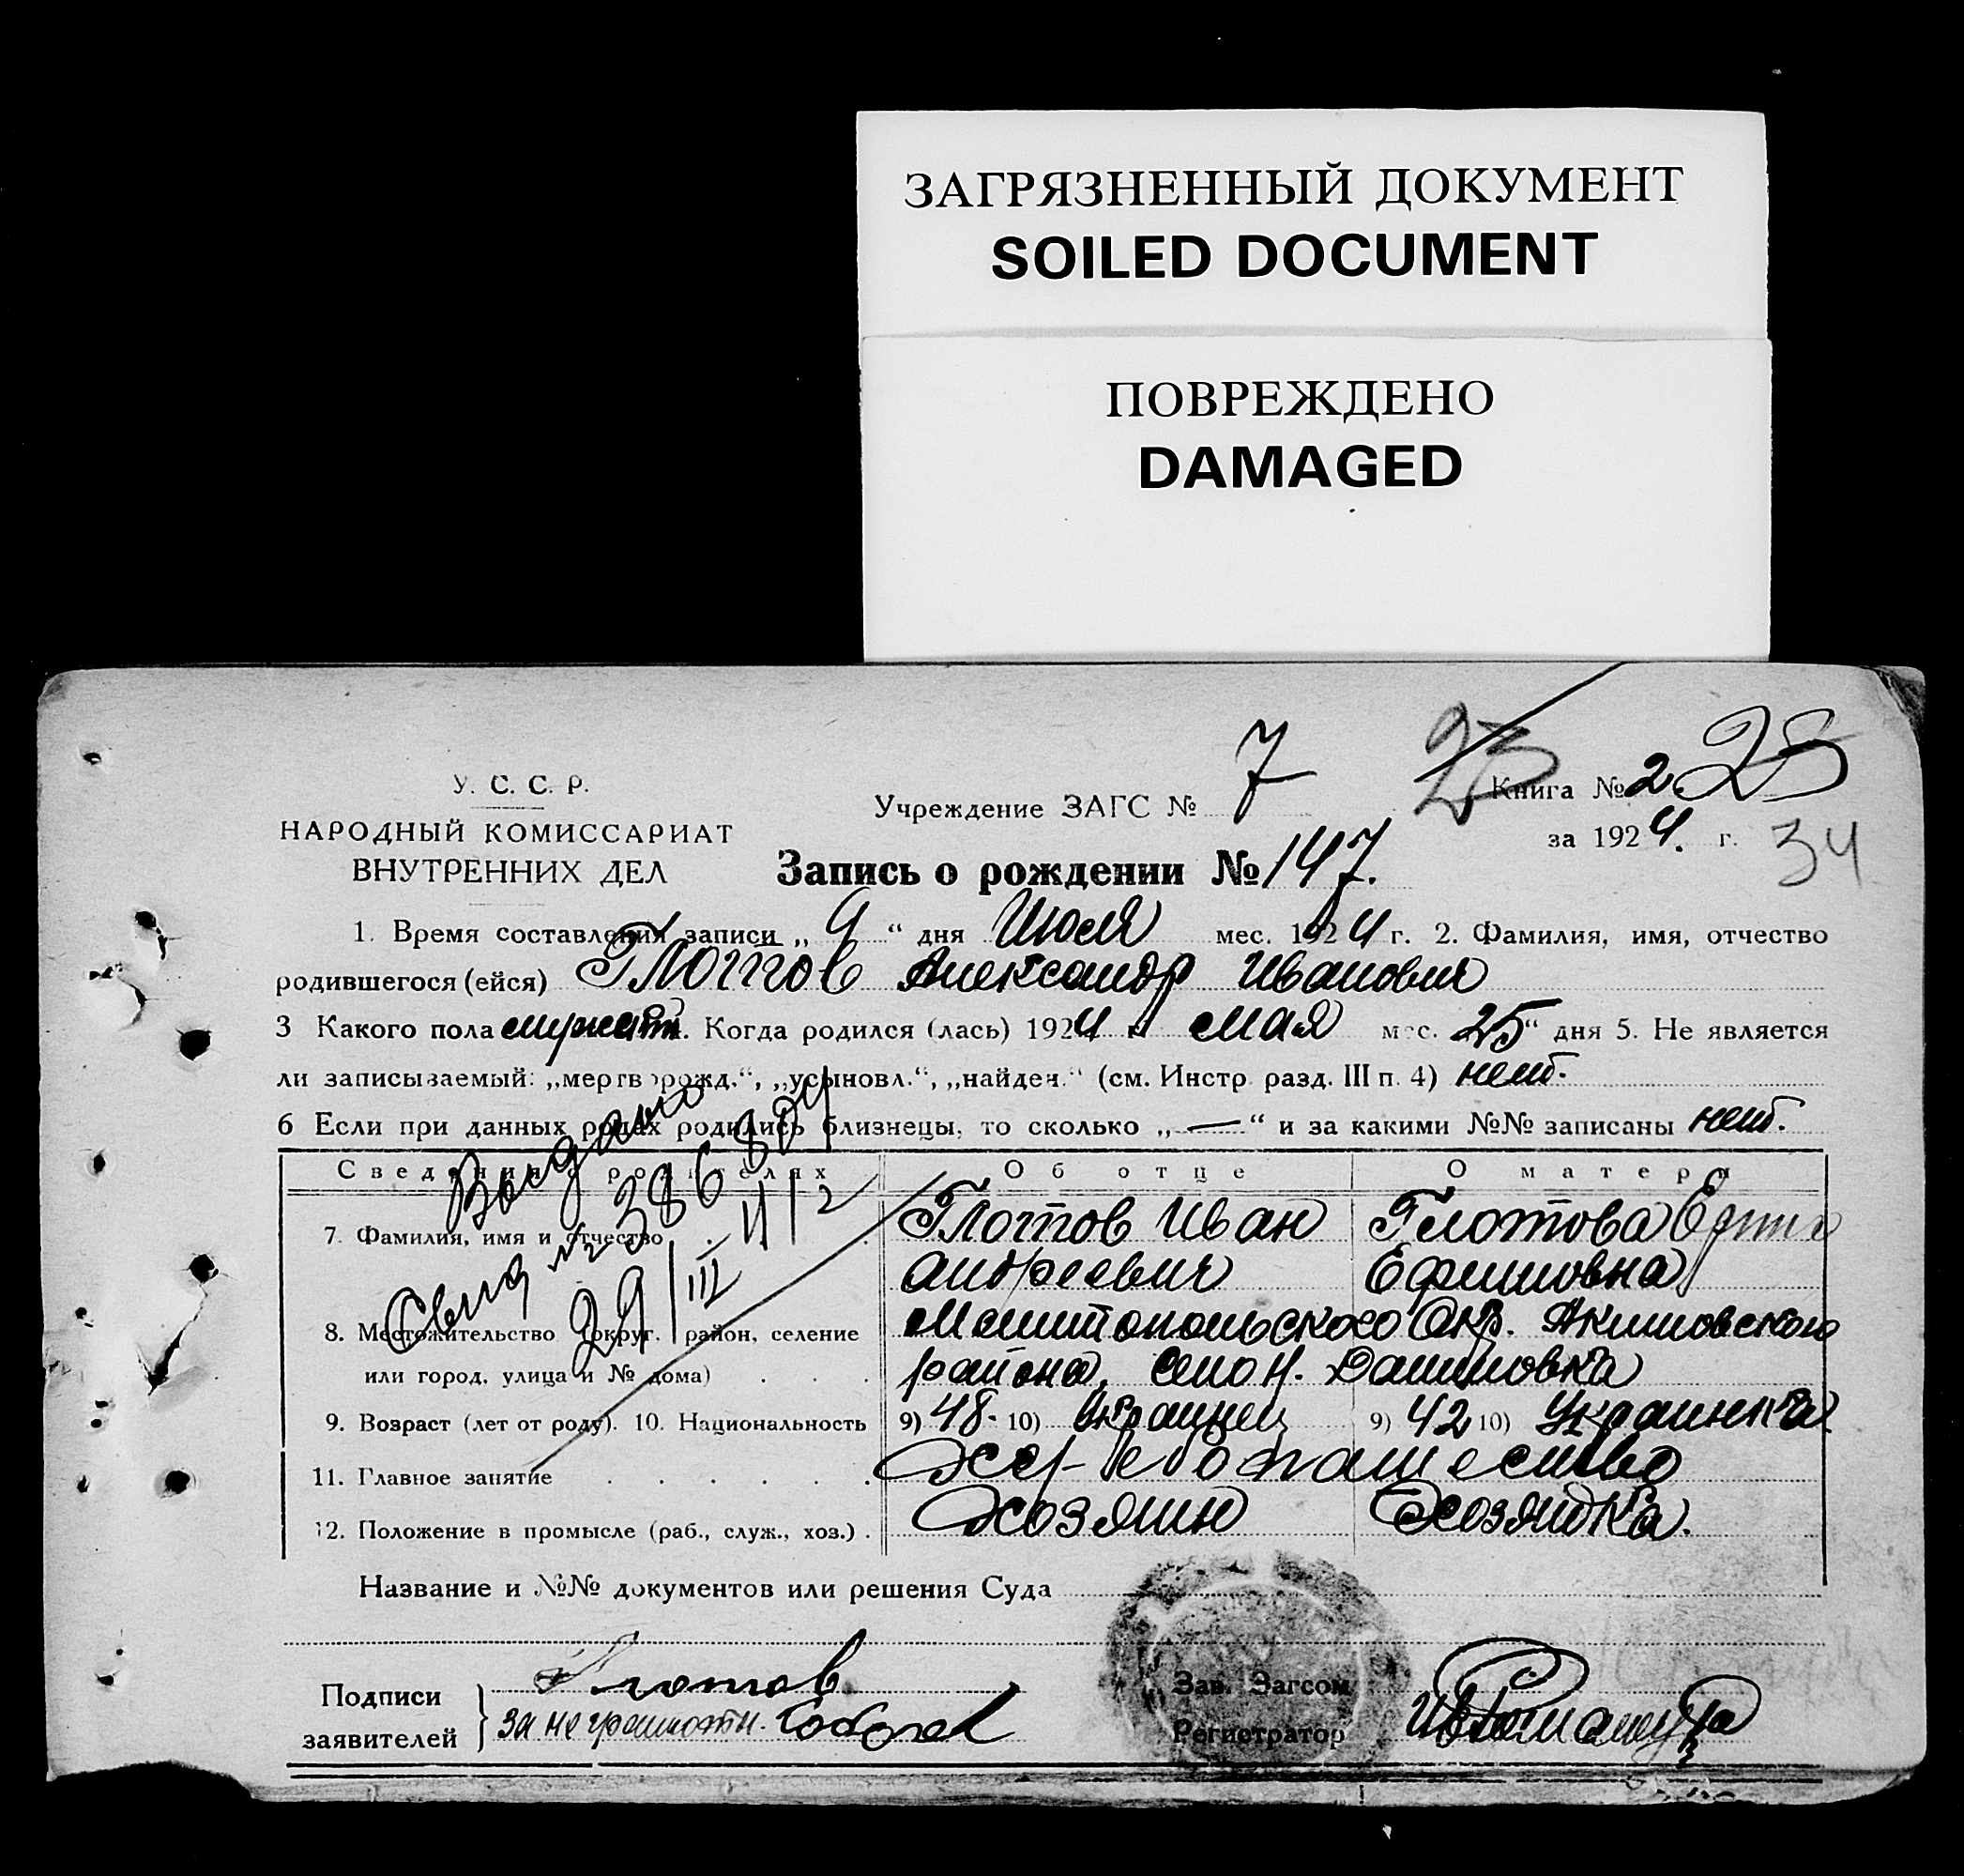 ЗАГРЯЗНЕННЫЙ ДОКУМЕНТ
SOILED DOCUMENT
ПОВРЕЖДЕНО
DAMAGED
У. С. С. Р.
НАРОДНЫЙ КОМИССАРИАТ
ВНУТРЕННИХ ДЕЛ
Учреждение ЗАГС № 7
23
Книга № 2 23
за 1924. г. 34
Запись о рождении № 147.
1. Время составления записи „ 9 “ дня Июля мес. 1924 г. 2. Фамилия, имя, отчество
родившегося (ейся) Глотов Александр Иванович
3 Какого пола мужской. Когда родился (лась) 1924 г. мая мес. 25 “ дня 5. Не является
ли записываемый: „мертворожд.“, „усыновл.“, „найден.“ (см. Инстр. разд. III п. 4) нет.
6 Если при данных родах родились близнецы, то сколько „ — “ и за какими №№ записаны нет.
Выдано
Свид № 386804
29/III
Сведения о родителях Об отце О матери
7. Фамилия, имя и отчество Глотов Иван Глотова
Андреевич Ефимовна
8. Местожительство (округ. район, селение Мелитопольского Окр. Акимовского
или город, улица и № дома) района, село Н. Даниловка
9. Возраст (лет от роду). 10. Национальность 9) 48. 10) Украинец 9) 42 10) Украинка
11. Главное занятие хлебопашество
12. Положение в промысле (раб., служ., хоз.) Хозяин Хозяйка.
Название и №№ документов или решения Суда
Подписи
заявителей
Глотов
за неграмотн.
Зав. Загсом
Регистратор